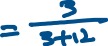 = 3/(3+12)